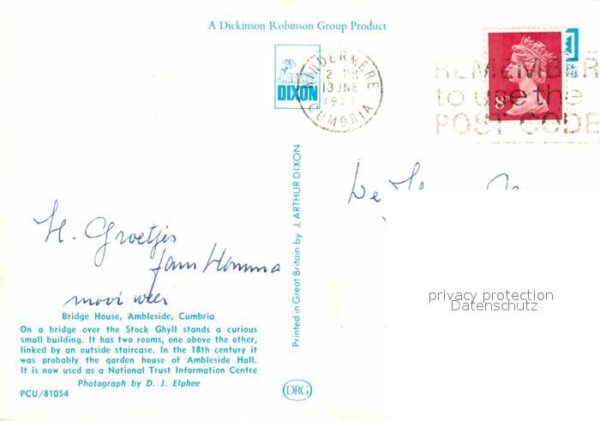 A Dickinson Robinson Group Product
DIXON
WINDERMERE
2 - PM
13 JNE
CUMBRIA
REMEMBER
to use the
POST CODE
8P
H. Groetjes
mooi weer
Printed in Great Britain by J. ARTHUR DIXON
privacy protection
Datenschutz
Bridge House, Ambleside, Cumbria
On a bridge over the Stock Ghyll stands a curious
small building. It has two rooms, one above the other,
linked by an outside staircase. In the 18th century it
was probably the garden house of Ambleside Hall.
It is now used as a National Trust Information Centre
Photograph by D. J. Elphee
PCU/81054
DRG